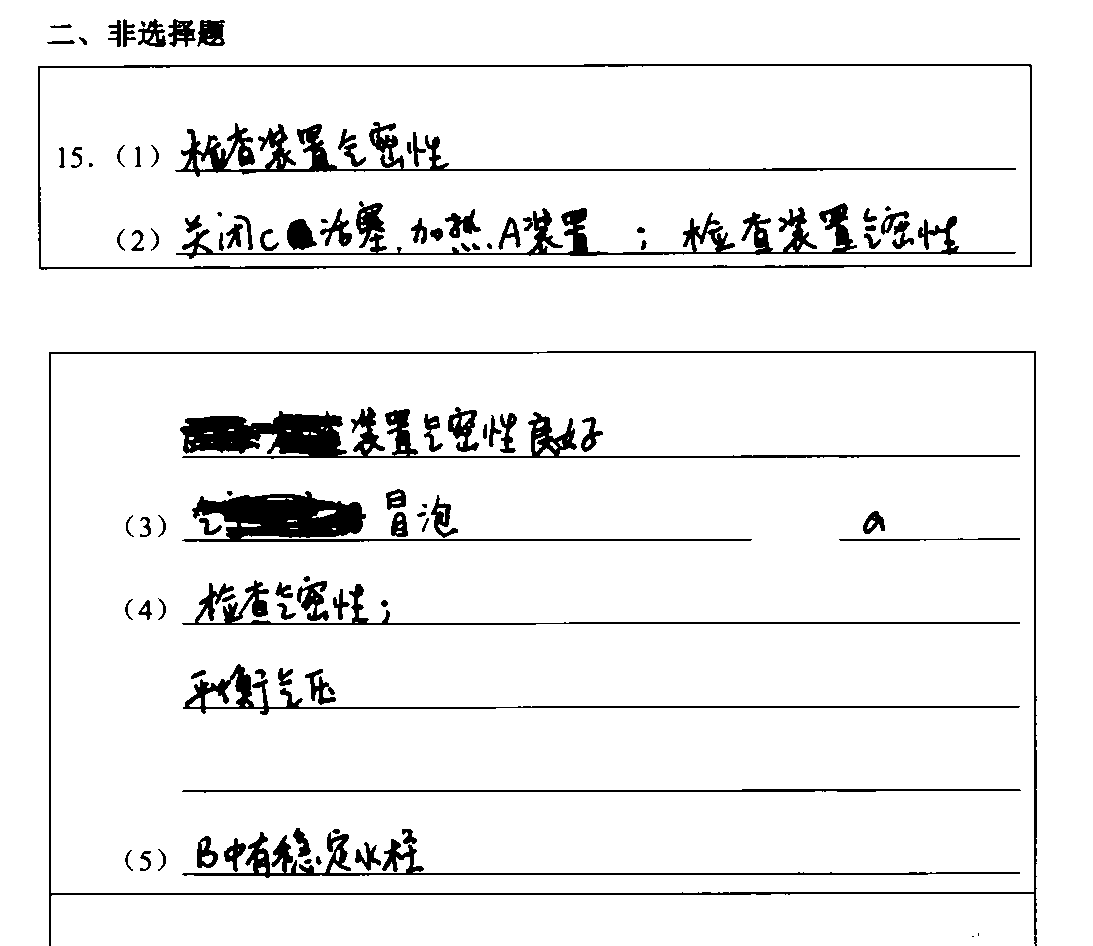 二、非选择题
15.（1）检查装置气密性
（2）关闭C活塞，加热A装置；检查装置气密性
装置气密性良好
（3）气 冒泡 a
（4）检查气密性；
平衡气压
（5）B中有稳定水柱